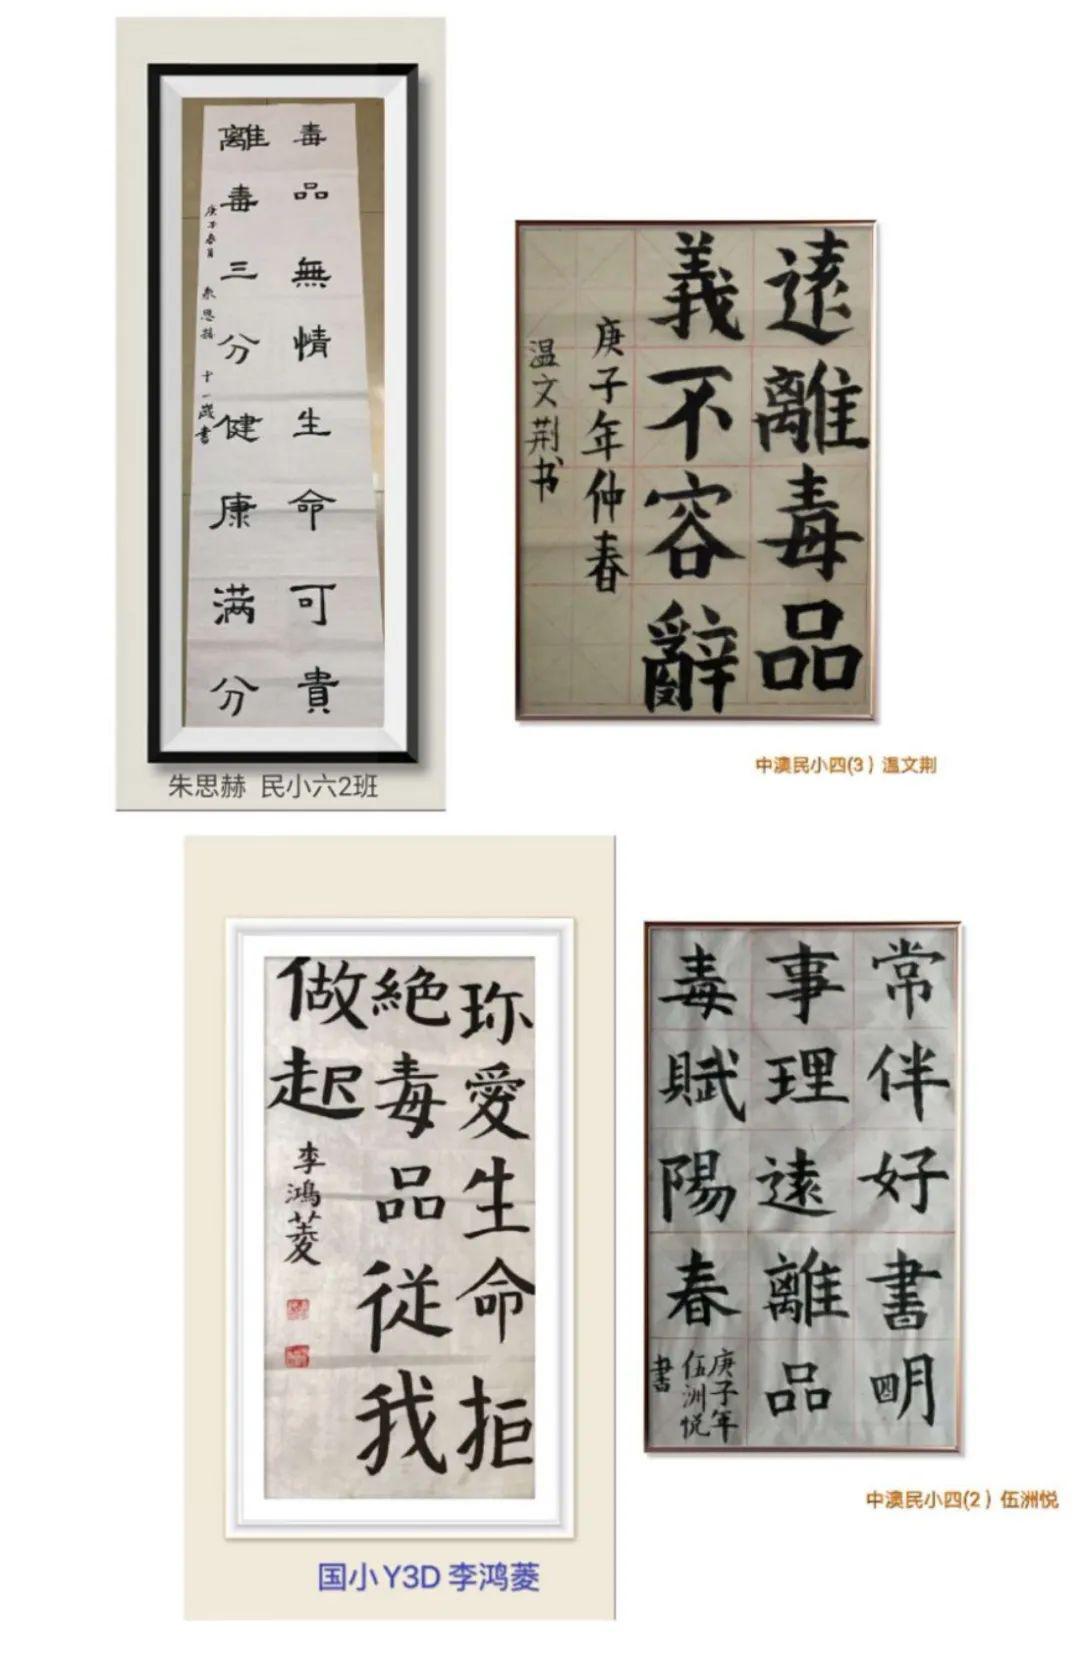 毒品無情生命可貴
離毒三分健康满分
庚子春月 朱思赫 十一歲書
朱思赫 民小六2班
遠離毒品
義不容辭
庚子年仲春
温文荆书
中澳民小四(3) 温文荆
珎愛生命拒
絶毒品従我
做起
李鴻菱
国小Y3D 李鸿菱
常伴好書明
事理遠離品
毒賦陽春
庚子年
伍洲悦
書
中澳民小四(2) 伍洲悦